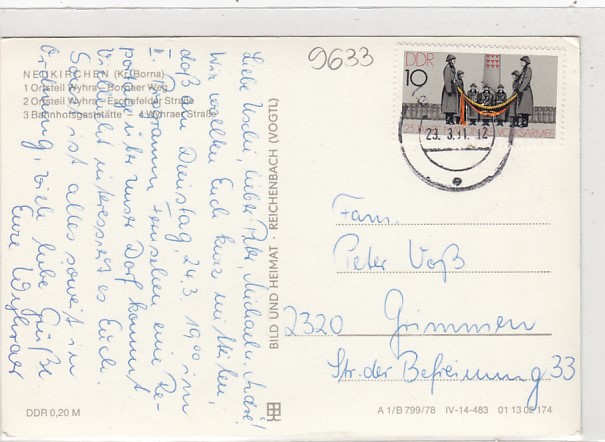 NEUKIRCHEN (Kr. Borna)
1 Ortsteil Wyhra - Bornaer Weg
2 Ortsteil Wyhra - Eschefelder Straße
3 Bahnhofsgaststätte 4 Wyhraer Straße
Liebe Uschi, lieber Peter, Michaela, André!
Wir wollten Euch kurz mitteilen,
daß am Dienstag, 24.3. 19.00 im
I. Programm Fernsehen eine Re-
portage über unser Dorf kommt
Vielleicht interessiert es Euch.
Sonst ist alles soweit in
Ordnung, viele liebe Grüße
Eure Wyhraer
BILD UND HEIMAT · REICHENBACH (VOGTL)
9633
DDR
10
25 JAHRE NATIONALE VOLKSARMEE
23. 3. 81. 12
Fam.
Peter Voß
2320 Grimmen
Str. der Befreiung 33
DDR 0,20 M
A 1/B 799/78 IV-14-483 01 13 02 174